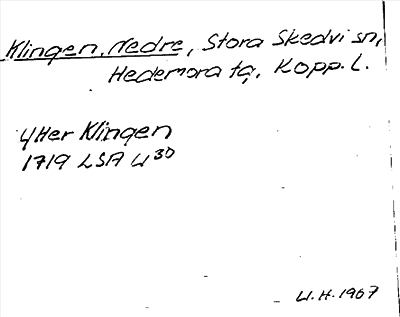 Klingen, Nedre, Stora Skedvi sn,
Hedemora tg, Kopp. L.
Ytter Klingen
1719 LSA U30
U.H. 1967